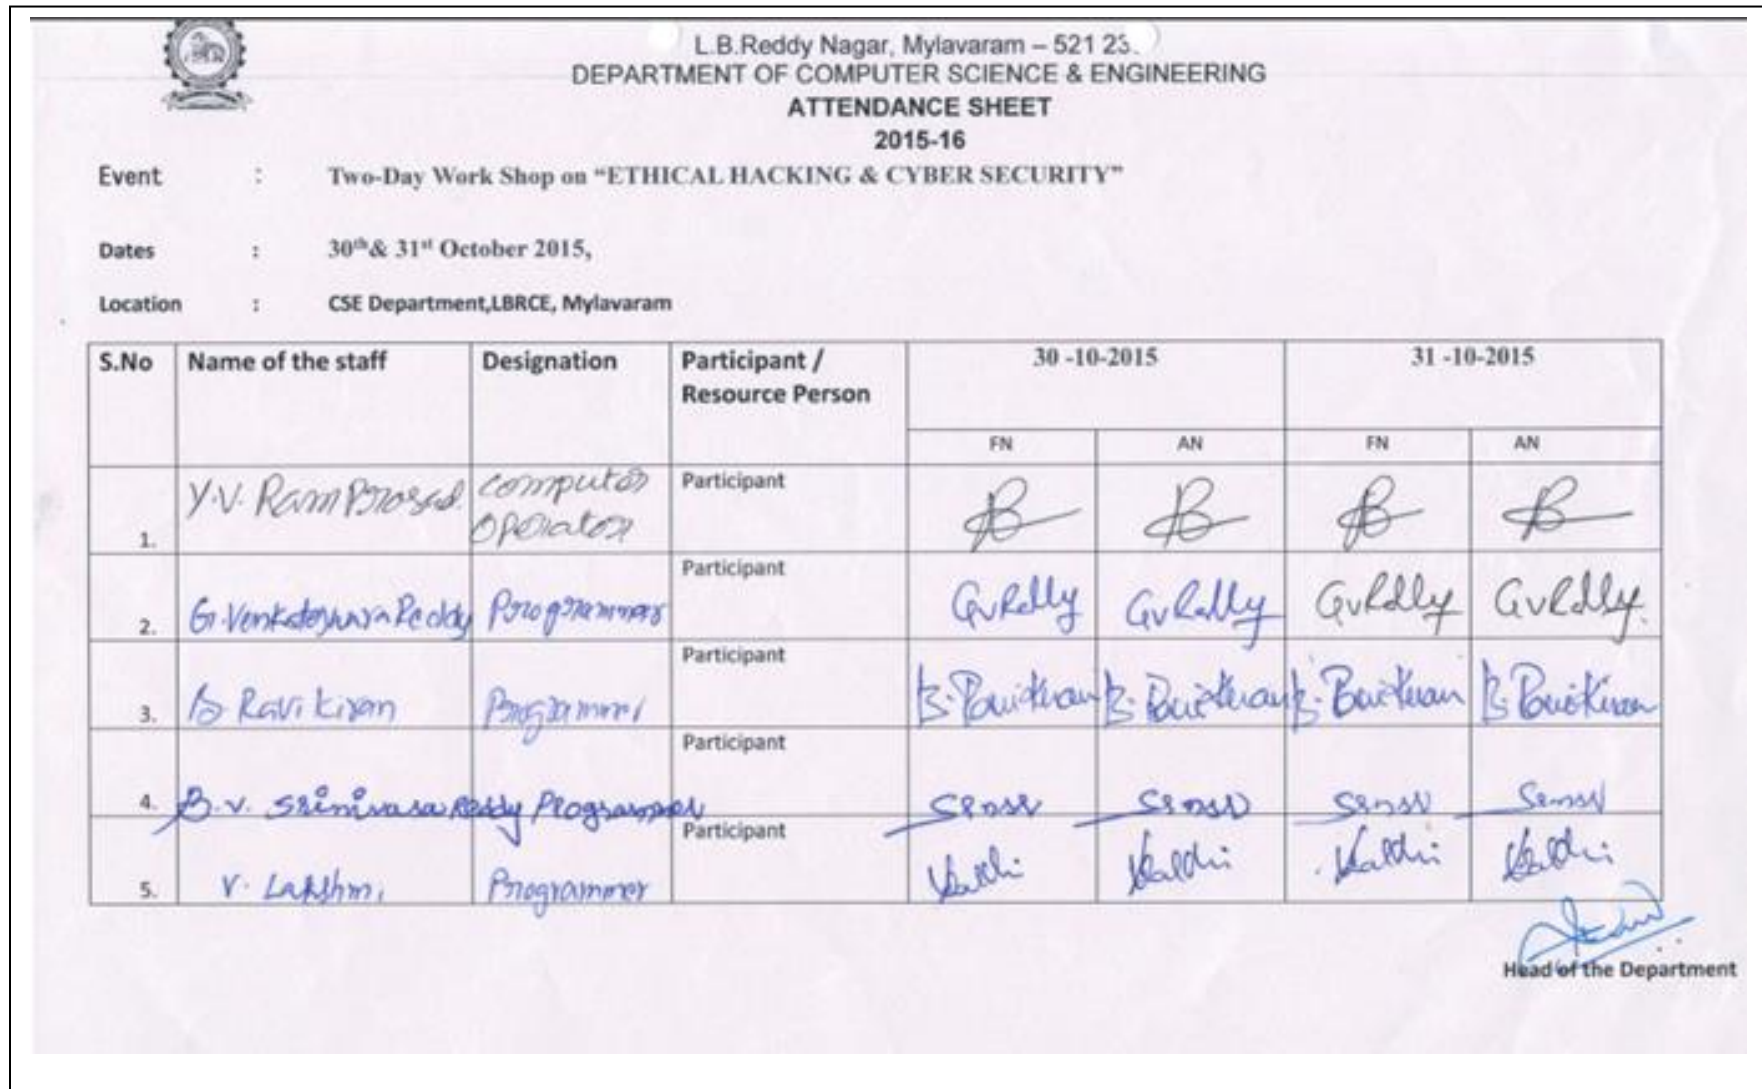 L.B.Reddy Nagar, Mylavaram – 521 23
DEPARTMENT OF COMPUTER SCIENCE & ENGINEERING
ATTENDANCE SHEET
2015-16
Event : Two-Day Work Shop on “ETHICAL HACKING & CYBER SECURITY”
Dates : 30th& 31st October 2015,
Location : CSE Department,LBRCE, Mylavaram
S.No Name of the staff Designation Participant / Resource Person 30 -10-2015 31 -10-2015
FN AN FN AN
1. Y.V. Ram Prasad. Computer Operator Participant
2. G.Venkateswara Reddy Programmer Participant GvReddy GvReddy GvReddy GvReddy.
3. B Ravi Kiran Programmer Participant B. Ravikiran B. Ravikiran B. Ravikiran B. Ravikiran
4. B.V. Srinivasa Reddy Programmer Participant
5. V. Lakshmi Programmer Participant
Head of the Department